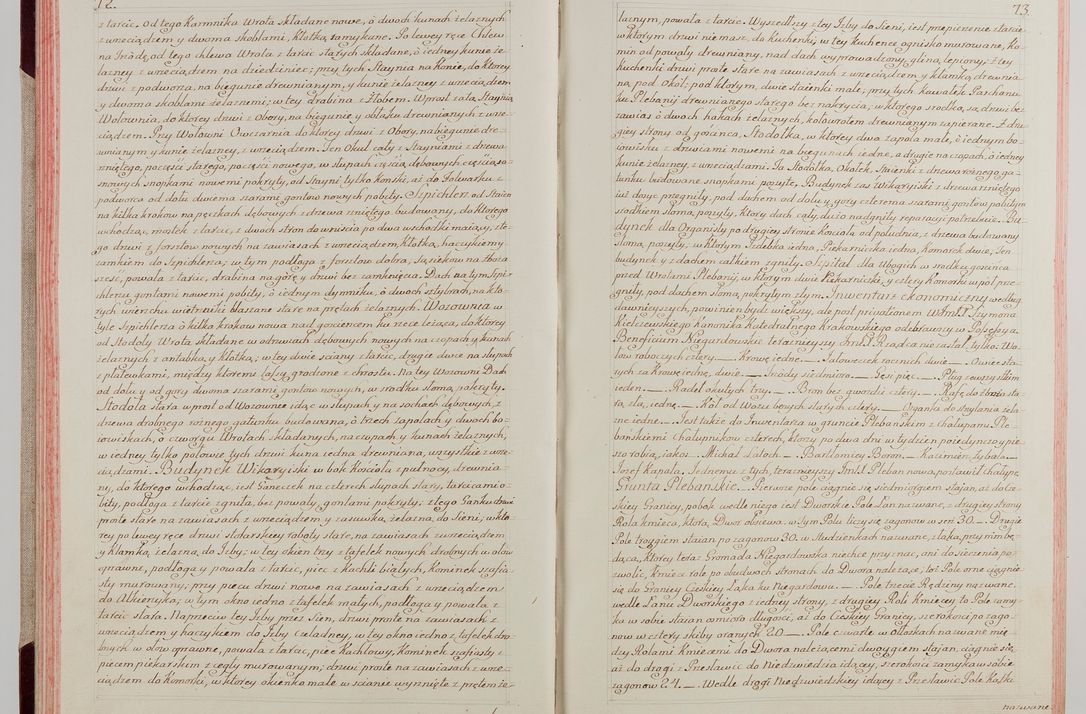 12.
z tarcic. Od tego Karmnika Wrota składane nowe, o dwoch kunach żelaznych
z wrzeciądzem y dwoma skoblami, Klotką zamykane. Po lewey ręce Chlew
na Trzodę, od tego chlewa Wrota z tarcic starych składane, o iedney kunie że-
lazney z wrzeciądzem na dziedziniec; przy tych Staynia na Konie, do ktorey
drzwi z podworza, na biegunie drewnianym, y kunie żelazney z wrzeciądzem
y dwoma skoblami żelaznemi; w tey drabina z Złobem. Wprost zaś Staynia
Wołownia, do ktorey drzwi z Obory, na biegunie y obłąku drewnianych z wrze-
ciądzem. Przy Wołowni Owczarnia do ktorey drzwi z Obory, na biegunie dre-
wnianym y kunie żelazney, z wrzeciądzem. Ten Okuł cały z Stayniami z drzewa
rzniętego, po części starego, po części nowego, w słupach częścią dębowych częścią so-
snowych snopkami nowemi pokryty, od Stayni tylko Konski, aż do Folwarku z
podworca od dołu dwiema szarami gontow nowych pobity. Szpichlerz od Staien
na kilka krokow na pęczkach dębowych z drzewa rzniętego budowany, do ktorego
wchodząc, mostek z tarcic, z dwoch stron do wniścia po dwa wschodki maiący, z te-
go drzwi z forsztow nowych na zawiasach z wrzeciądzem, Klotką, haczykiem y
zamkiem do Szpichlerza; w tym podłoga z forsztow dobra, sąsiekow na zboża
sześć, powała z tarcic, drabina na górę y drzwi bez zamknięcia. Dach na tym Szpi-
chlerzu gontami nowemi pobity, o iednym dymniku, o dwoch sztybrach, na kto-
rych wierzchu wietrzniki blaszane stare na prętach żelaznych. Wozownia w
tyle Szpichlerza o kilka krokow nowa nad gościencem ku rzece leżąca, do ktorey
od Stodoły Wrota składane w odrzwiach dębowych nowych na czopach y kunach
żelaznych z antabką y Klotką; w tey dwie sciany z tarcic, drugie dwie na słupach
z płatewkami, między ktoremi łasy, grodzone z chrostu. Na tey Wozowni Dach
od dołu y od gory dwoma szarami gontow nowych, w srodku słomą pokryty.
Stodoła stara w prost od Wozowni idąc w słupach y na sochach dębowych, z
drzewa drobnego roznego gatunku budowana, o trzech zapolach y dwoch bo-
iowiskach, o czworgu Wrotach składanych, na czopach y kunach żelaznych,
w iedney tylko połowie tych drzwi kuna iedna drewniana, wszystkie z wrze-
ciądzami. Budynek Wikaryiski w bok Kościoła z pułnocy, drewnia-
ny, do ktorego wchodząc, iest Ganeczek na czterech słupach stary, tarcicami o-
bity, podłoga z tarcic zgniła, bez powały, gontami pokryty; z tego Ganku drzwi
proste stare na zawiasach z wrzeciądzem y zasuwką żelazną, do Sieni; w kto-
rey po lewey ręce drzwi stolarskiey roboty stare, na zawiasach z wrzeciądzem
y Klamką żelazną, do Izby; w tey okien trzy z tafelek nowych drobnych w ołow
oprawne, podłoga y powała z tarcic, piec z kachli białych, Kominek szafia-
sty murowany; przy piecu drzwi nowe na zawiasach z wrzeciądzem
do Alkierzyka; w tym okno iedno z tafelek małych, podłoga y powała z
tarcic stara. Naprzeciw tey Izby przez Sien, drzwi proste na zawiasach z
wrzeciądzem y haczykiem do Izby czeladney, w tey okno iedno z tafelek dro-
bnych w ołow oprawne, powała z tarcic, piec Kachlowy, Kominek szafiasty z
piecem piekarskim z cegły murowanym; drzwi proste na zawiasach z wrze-
ciądzem do Komorki, w ktorey okienko małe w scianie wyrznięte z prętem że-
13.
laznym, powała z tarcic. Wyszedłszy z tey Izby do Sieni, iest przepierzenie starcic
w ktorym drzwi niemasz do Kuchenki; w tey Kuchence ognisko murowane, Ko-
min od powały drewniany, nad dach wyprowadzony, gliną lepiony; z tey
Kuchenki drzwi proste stare na zawiasach z wrzeciądzem y klamką drewnia-
ną, pod okoł; pod ktorym, dwie staienki małe; przy tych kawałek Parchanu
ku Plebanij drewnianego starego bez nakrycia, w ktorego srodku, są drzwi bez
zawias o dwoch hakach żelaznych, kołowrotem drewnianym zapierane. Z dru-
giey strony od gościnca, Stodołka, w ktorey dwa zapola małe, o iednym bo-
iowisku z drzwiami nowemi na biegunach iedne, a drugie na czopach, o iedney
kunie żelazney, z wrzeciądzami. Ta Stodołka, Okołek, Staienki z drzewa roznego ga-
tunku budowane snopkami poszyte, Budynek zas Wikaryiski z drzewa rzniętego
iuż dosyc przegniły, pod dachem od dołu y gory czterema szarami gontow pobitym
srodkiem słomą poszyty, ktory dach cały, dużo nadgniły reparacyi potrzebuie. Bu-
dynek dla Organisty po drugiey stronie Kościoła od południa, z drzewa budowany
słomą poszyty; w ktorym Izdebka iedna, Piekarniczka iedna, Komorek dwie, Ten
budynek y z dachem całkiem zgniły. Szpital dla Ubogich w srodku gosunca
przed Wrotami Plebanij, w ktorym dwie Piekarniczki, y cztery Komorki w poł prze-
gniły, pod dachem słomą pokrytym złym. Inwentarz ekonomiczny według
dawnieyszych, powinien bydz większy, ale post privationem W Imci X. Szymona
Kiełczewskiego Kanonika Katedralnego Krakowskiego odebrawszy w Possessyą
Beneficium Niegardowskie teraznieyszy Imci X. Rządca nie zastał, tylko. Wo-
łow roboczych cztery.—. Krowę iedne.—. Jałoweczek rocznich dwie.—. Owiec sta-
rych za Krowę iedną, dwie.—. Trzody siedmioro.—. Gęsi pięc.—. Pług zewszystkim
ieden.—. Radeł okutych trzy.—. Bron bez gwoździ cztery.—. Kafę do zboża sta-
rą, złą, iednę.—. Koł od Wozu bosych starych cztery.—. Organki do strzylania żela-
zne iedne.—. Jest także do Inwentarza w gruncie Plebanskim z chałupami Ple-
banskiemi Chałupnikow czterech, ktorzy po dwa dni w tydzien poiedynczo y pie-
szo robią, iako: Michał Saloch.—. Bartłomiey Boron.—. Kazimierz Sybala.—.
Jozef Kapała. Jednemu z tych, teraznieyszy Imci X. Pleban nową postawił chałupę.
Grunta Plebanskie.—. Pierwsze pole ciągnie się siedmiorgiem staian, aż do Cze-
skiey Granicy, pobok wedle niego iest Dworskie Pole Łan nazwane, z drugiey strony
Rola kmieca, ktorą Dwor obsiewa. w tym Polu liczy się zagonow w serż 30.—. Drugie
Pole trzygiem staian po zagonow 30. w Studzienkach nazwane, z łąką, przy nim bę-
dącą, ktorey teraz Gromada Niegardowska niechce przyznac, oni do sieczenia po-
zwolic. Kmiece role po obudwoch stronach do Dwora należące; toż Pole orne ciągnie
się do Granicy Czeskiey Łąka ku Niegardowu.—. Pole trzecie Rędziny nazwane.
wedle Łanu Dworskiego z iedney strony, z drugiey Roli Kmieciey, to Pole zamy-
ka w sobie staian osmioro długości, aż do Czeskiey Granicy, szerokości po zago-
now w cztery skiby oranych 20.—. Pole czwarte w Olszkach nazwane mię-
dzy Rolami Kmieciemi do Dwora należącemi dwoygiem staian, ciągnie się,
aż do drogi z Przesławic do Niedzwiedzia idącey, szerokości zamyka w sobie
zagonow 24.—. Wedle drogi Niedzwiedzskiey idącey z Przesławic Pole Kąski
nazwane